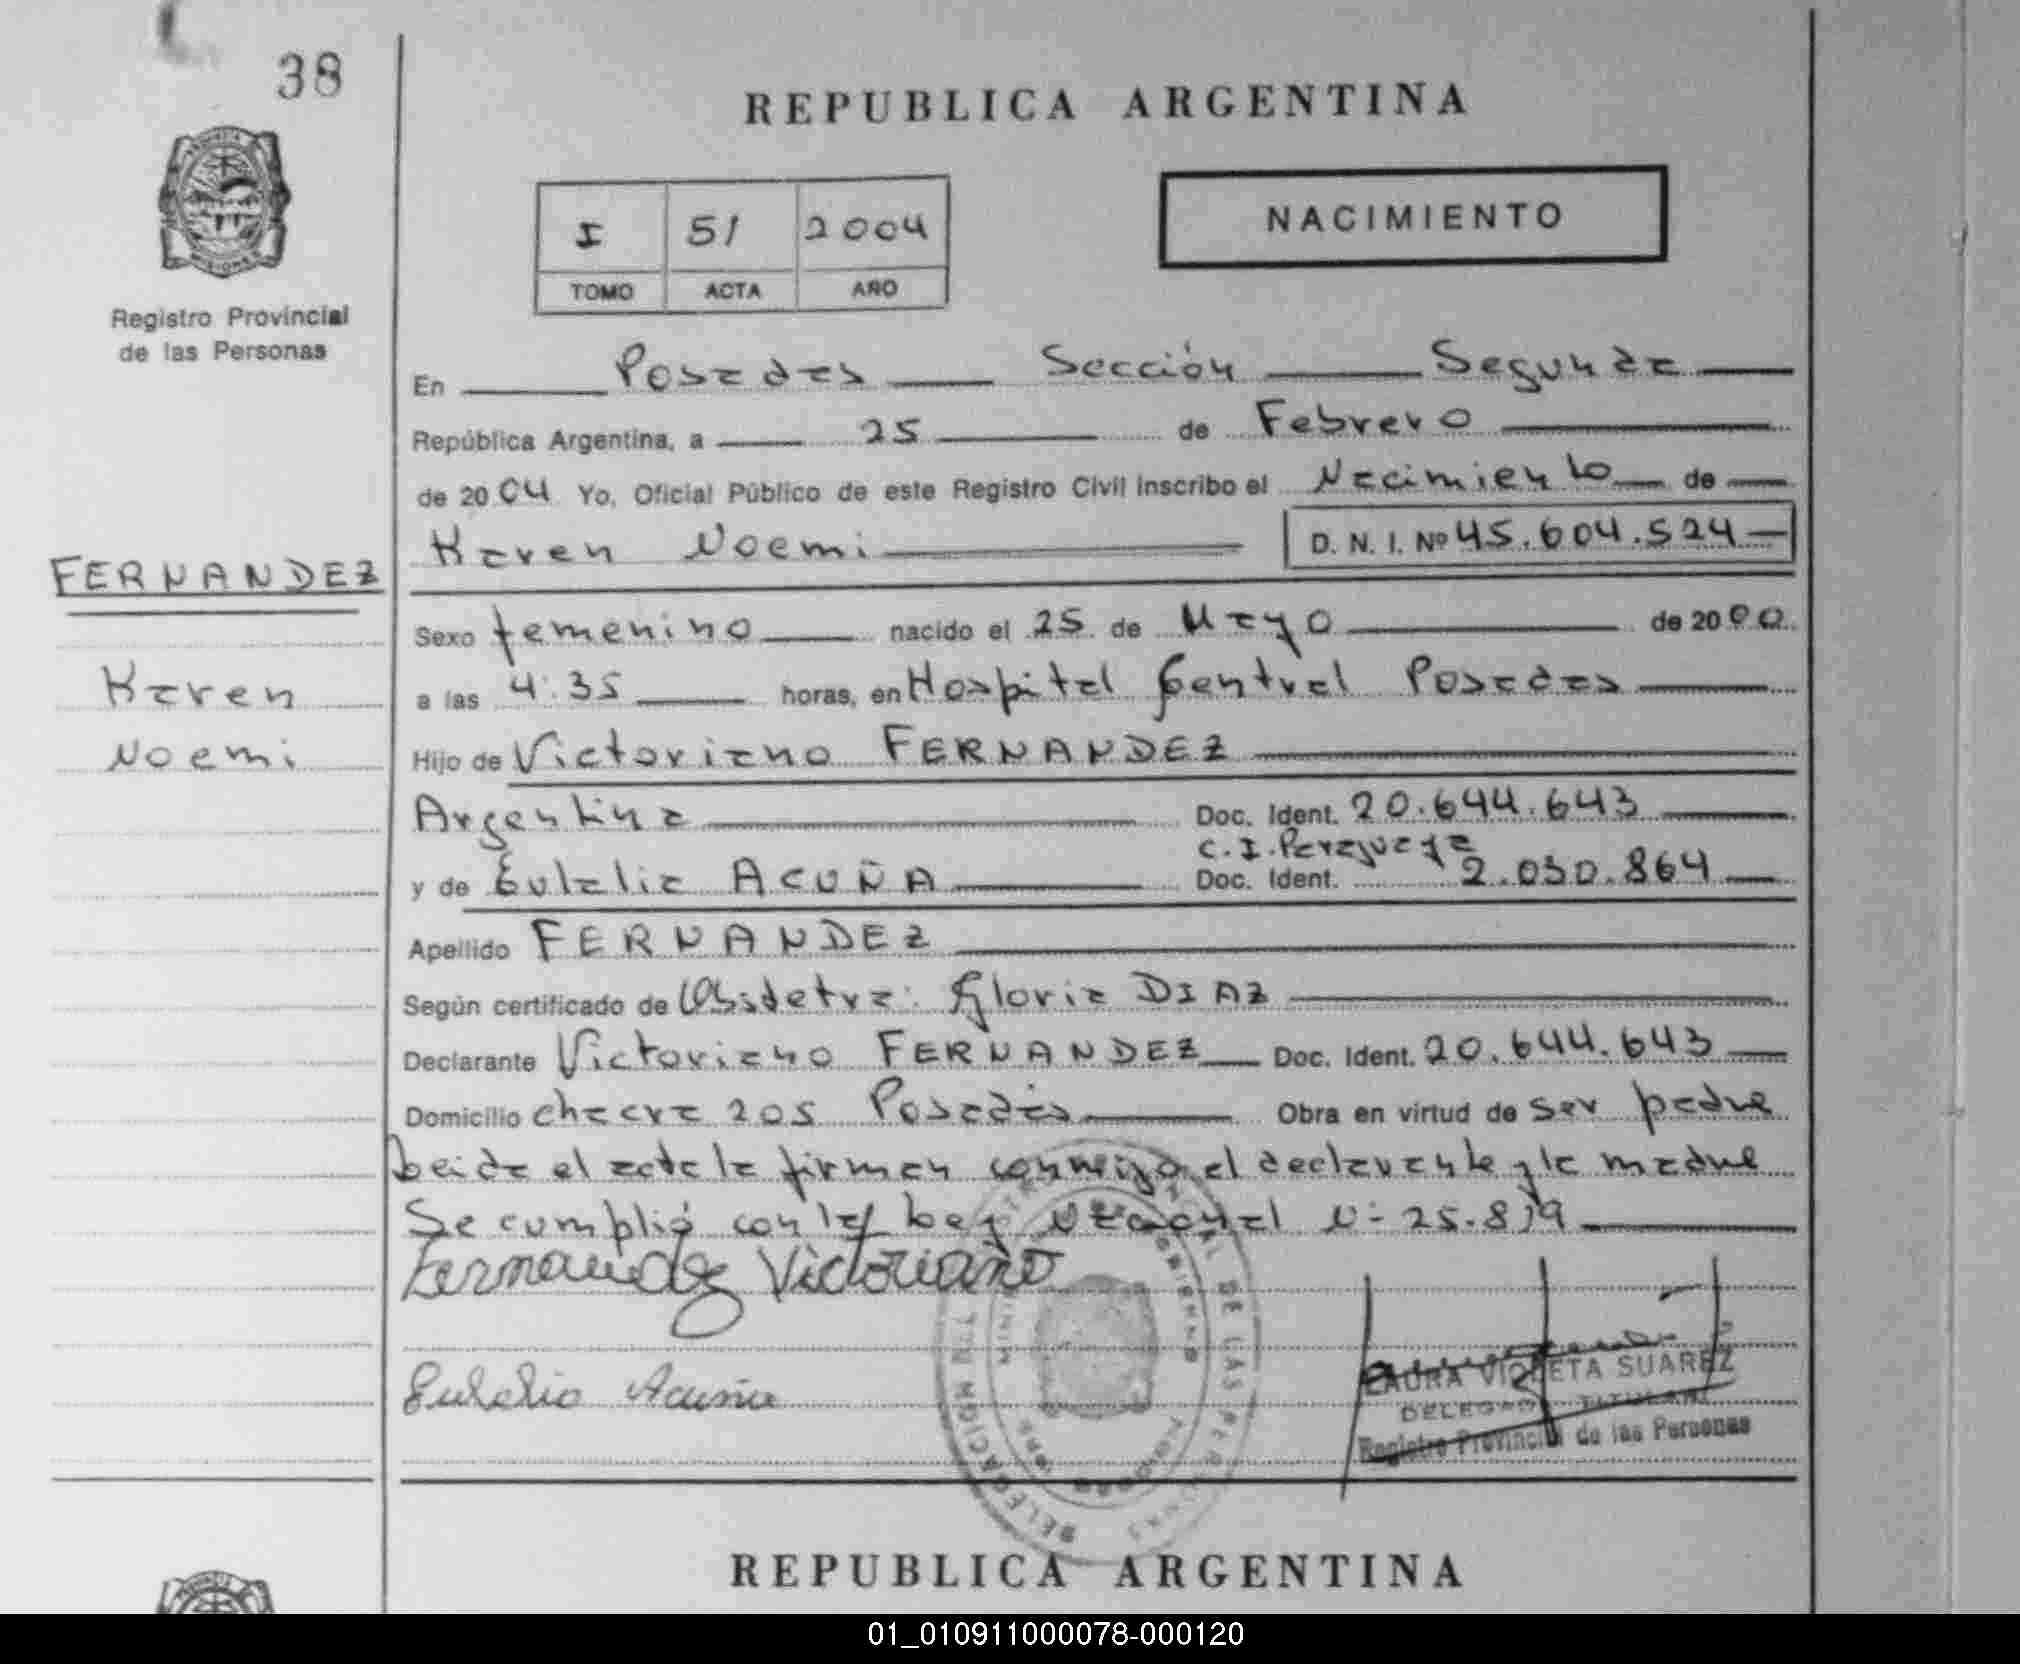 38
REPUBLICA ARGENTINA
I 51 2004
TOMO ACTA AÑO
NACIMIENTO
MISIONES
Registro Provincial
de las Personas
En Posadas Sección Segunda
República Argentina, a 25 de Febrero
de 2004 Yo, Oficial Público de este Registro Civil inscribo el Nacimiento de
Karen Noemi D. N. I. Nº 45.604.524
FERNANDEZ
Karen
Noemi
Sexo femenino nacido el 25 de Mayo de 2000
a las 4:35 horas, en Hospital Central Posadas
Hijo de Victoriano FERNANDEZ
Argentina Doc. Ident. 20.644.643
C.I. Paraguaya
y de Eulalia ACUÑA Doc. Ident. 2.030.864
Apellido FERNANDEZ
Según certificado de Obstetra: Gloria DIAZ
Declarante Victoriano FERNANDEZ Doc. Ident. 20.644.643
Domicilio chacra 205 Posadas Obra en virtud de ser padre
Leida el acta la firman conmigo el declarante y la madre
Se cumplió con la Ley Nacional N- 25.819
Fernandez Victoriano
Eulalia Acuña
LAURA VIOLETA SUAREZ
DELEGADA TITULAR
Registro Provincial de las Personas
REPUBLICA ARGENTINA
01_010911000078-000120